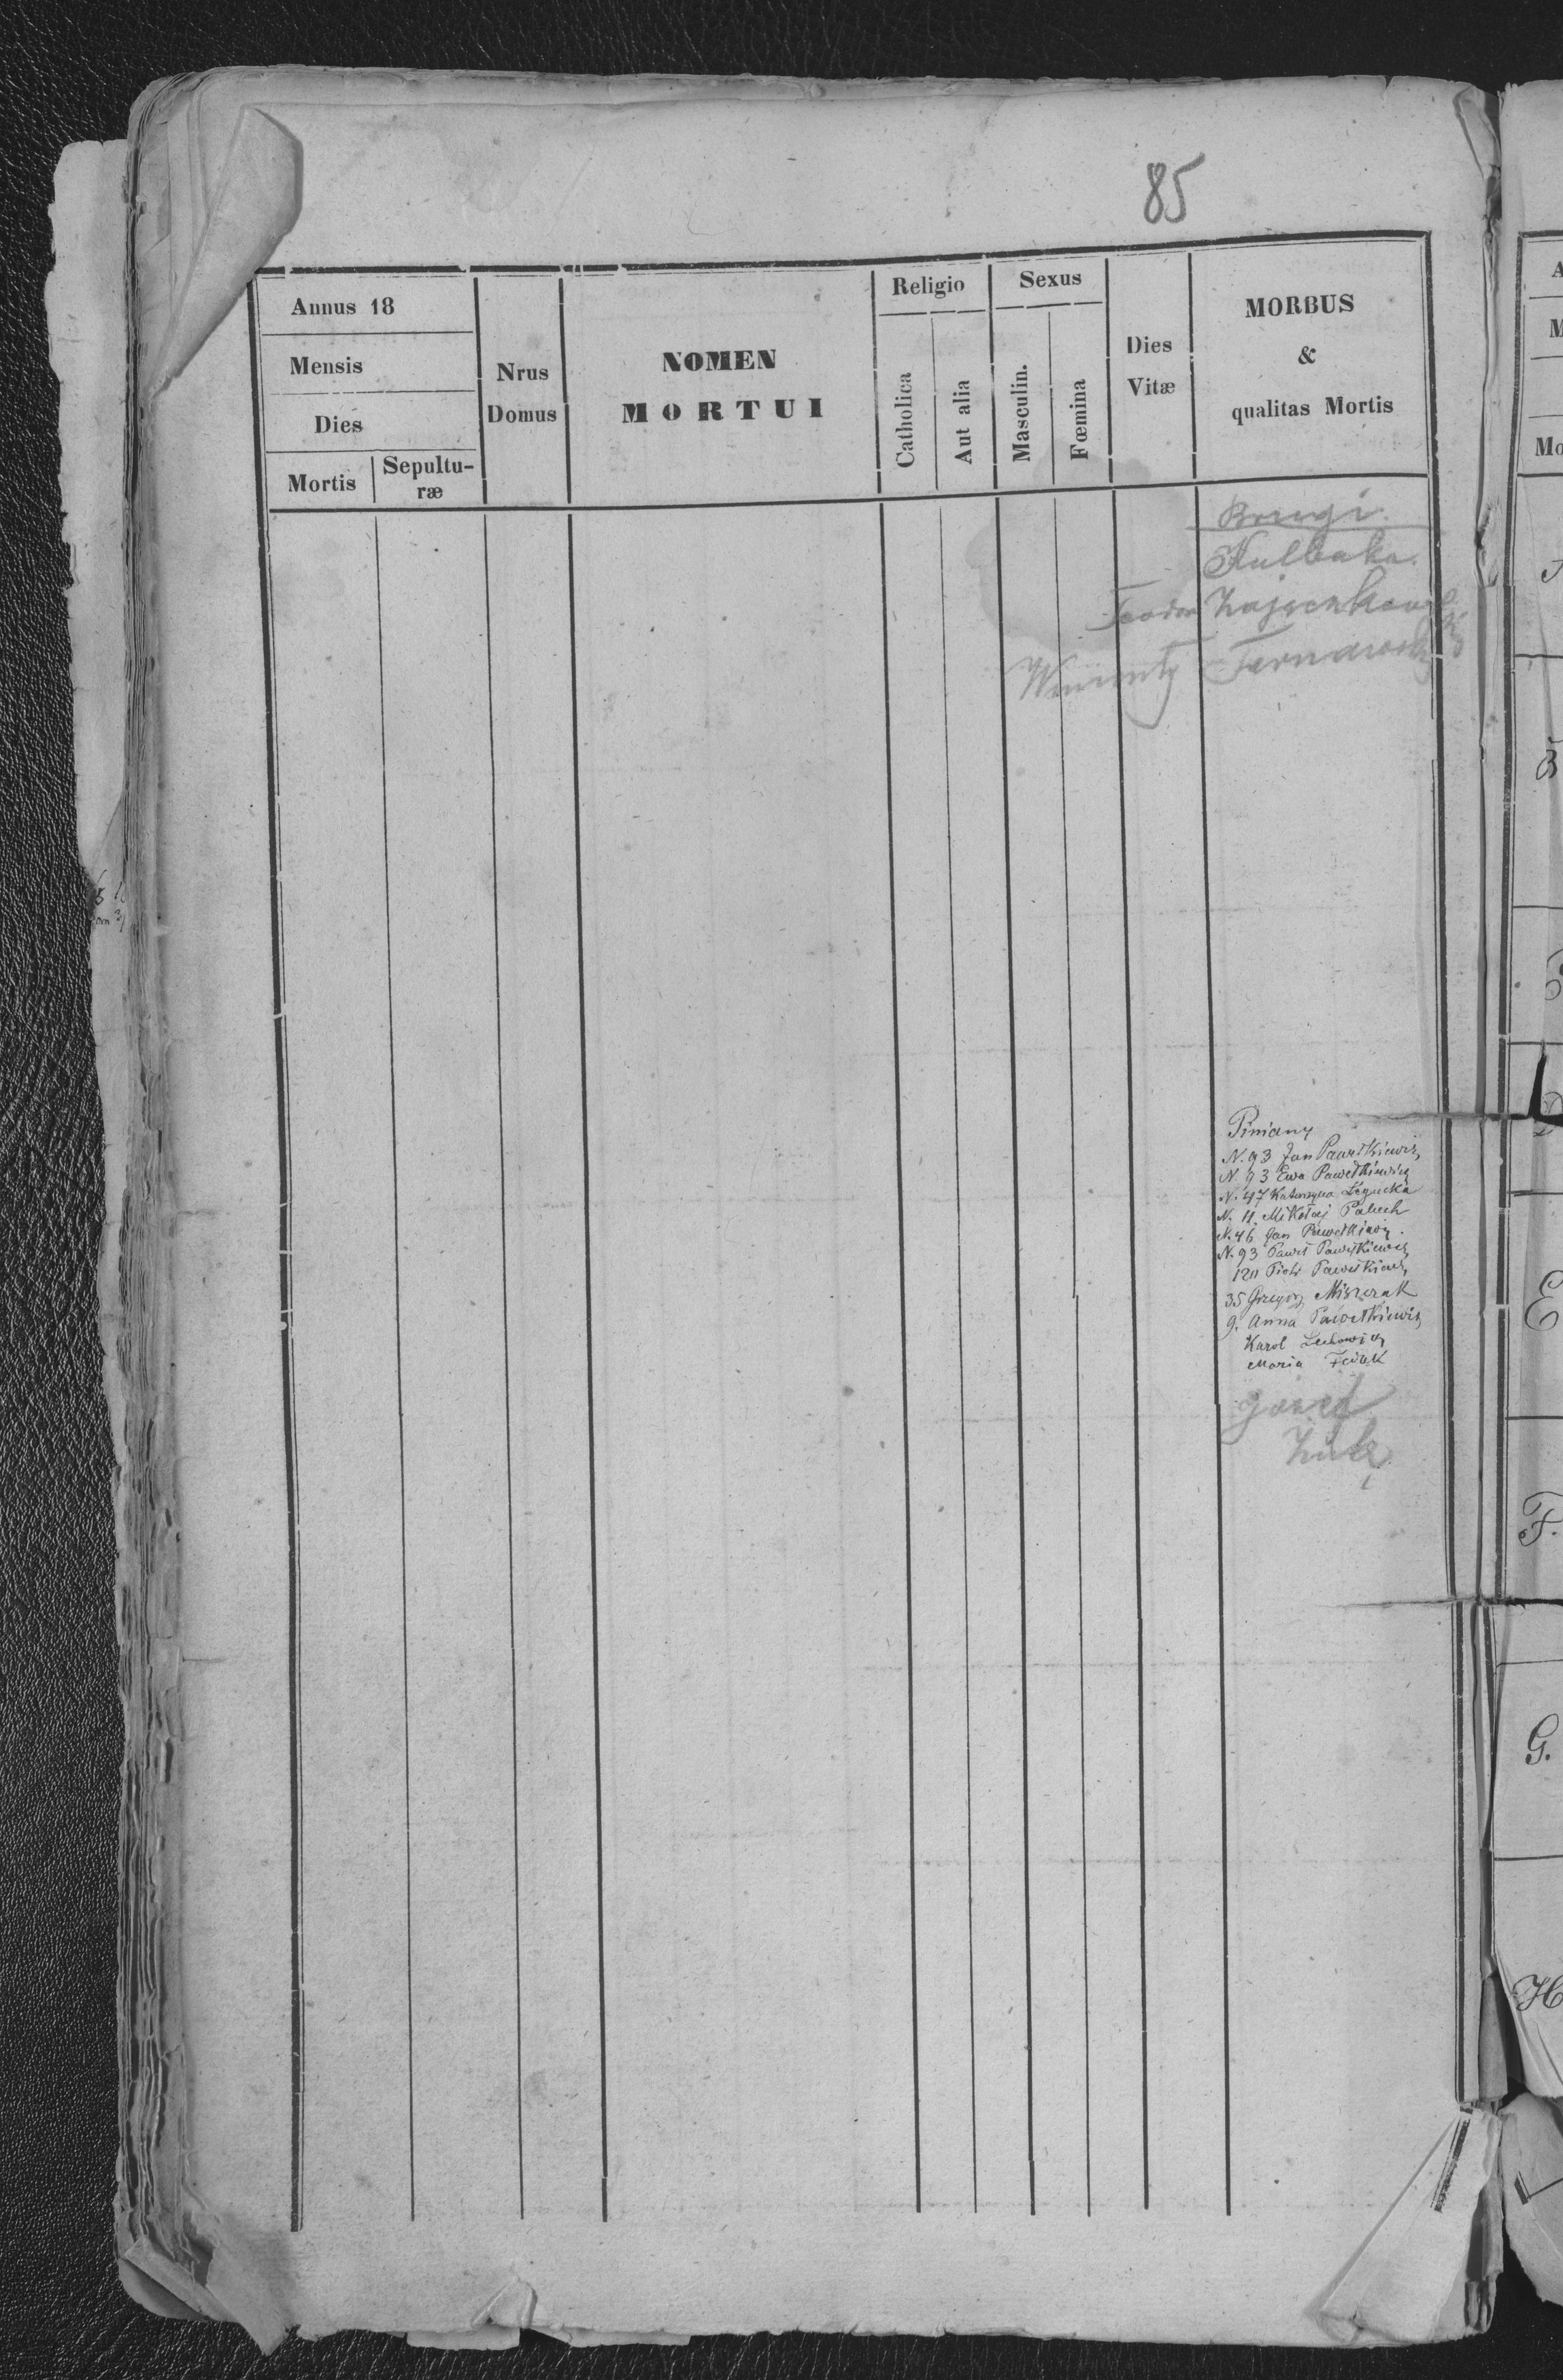 85
Annus 18
Mensis
Dies
Mortis
Sepultu-
ræ
Nrus
Domus
NOMEN
MORTUI
Religio
Catholica
Aut alia
Sexus
Masculin.
Fœmina
Dies
Vitæ
MORBUS
&
qualitas Mortis
Kulbaka
Teodor Zajaczkowski
Wincenty Tarnawski
Piniany
N. 93 Jan Pawełkiewicz
N 93 Ewa Pawełkiewicz
N. 47 Katarzyna Legucka
N. 11. Mikołaj Paluch
N. 46 Jan Pawełkiewicz.
N. 93 Paweł Pawełkiewicz
120 Piotr Pawełkiewicz
35 Grzegorz Miszczak
9. Anna Pawełkiewicz
Karol
Maria
Józef
E
F.
G.
H